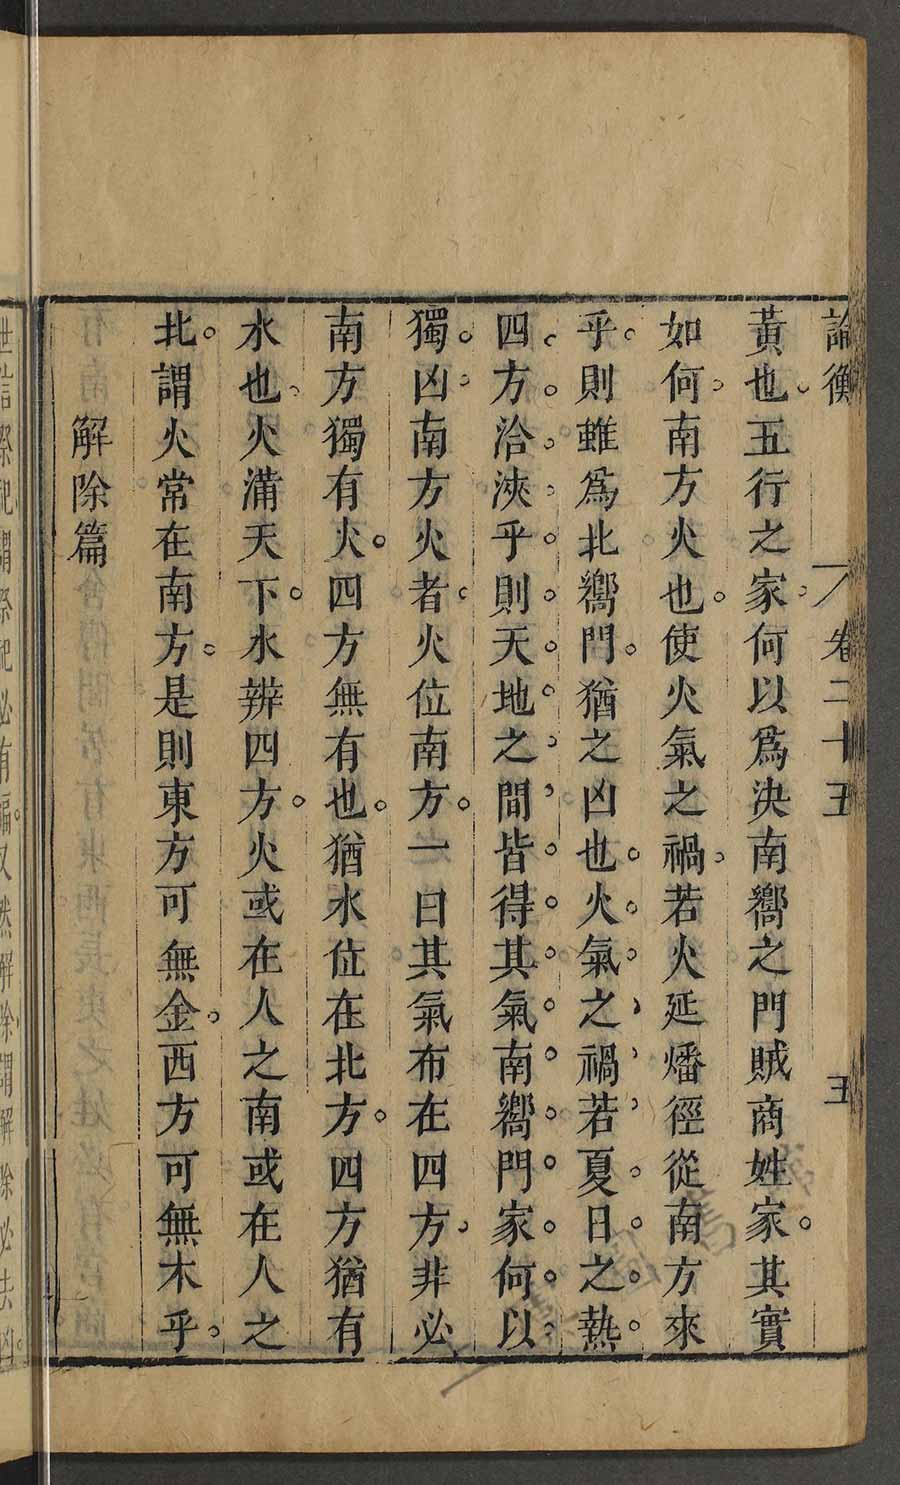 論衡 卷二十五 五
黃也五行之家何以爲決南嚮之門賊商姓家其實
如何南方火也使火氣之禍若火延燔徑從南方來
乎則雖爲北嚮門猶之凶也火氣之禍若夏日之熱
四方洽浹乎則天地之間皆得其氣南嚮門家何以
獨凶南方火者火位南方一曰其氣布在四方非必
南方獨有火四方無有也猶水位在北方四方猶有
水也火滿天下水辨四方火或在人之南或在人之
北謂火常在南方是則東方可無金西方可無木乎
解除篇
世信祭祀謂祭祀必有福又然解除謂解除必去凶